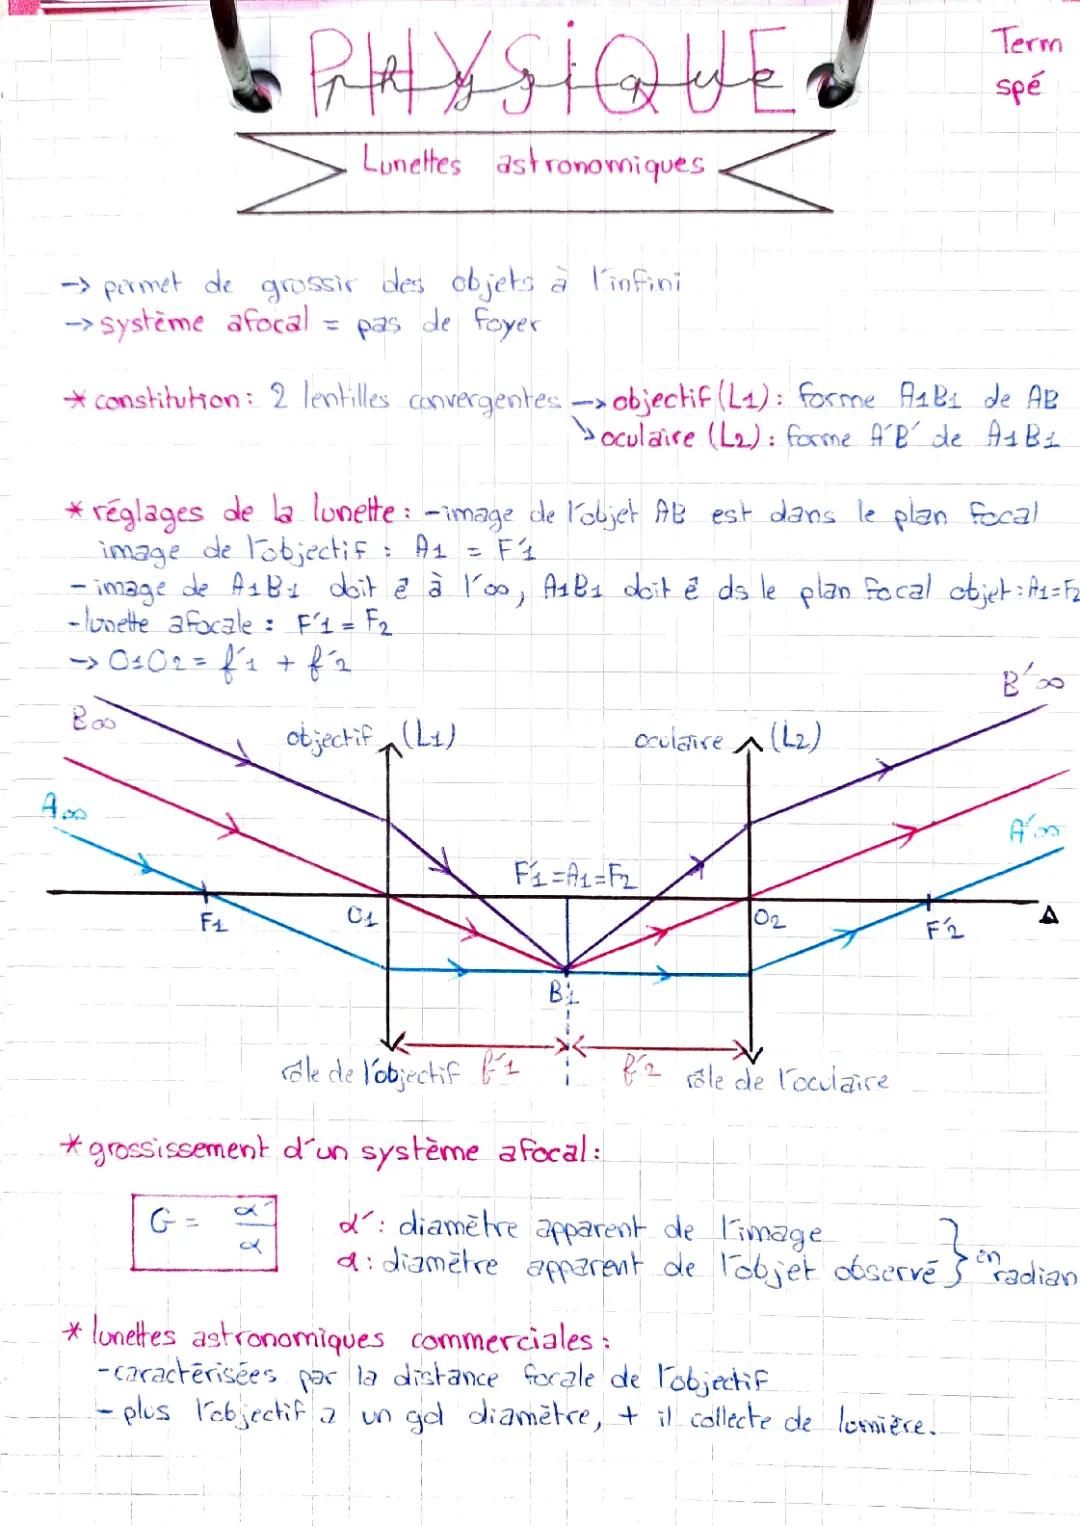 PHYSIQUE
Physique
Term
spé
Lunettes astronomiques
-> permet de grossir des objets à l'infini
-> système afocal = pas de foyer
* constitution : 2 lentilles convergentes -> objectif (L1) : forme A1B1 de AB
↘ oculaire (L2) : forme A'B' de A1B1
* réglages de la lunette : - image de l'objet AB est dans le plan focal
image de l'objectif : A1 = F'1
- image de A1B1 doit ê à l'∞, A1B1 doit ê ds le plan focal objet : A1=F2
- lunette afocale : F'1 = F2
-> O1O2 = f'1 + f'2
B∞
objectif (L1)
oculaire (L2)
B'∞
A∞
A'∞
F'1=A1=F2
F1
O1
O2
F'2
Δ
B1
f'1
f'2
rôle de l'objectif
rôle de l'oculaire
* grossissement d'un système afocal :
G = α'/α
α' : diamètre apparent de l'image
α : diamètre apparent de l'objet observé } en radian
* lunettes astronomiques commerciales :
- caractérisées par la distance focale de l'objectif
- plus l'objectif a un gd diamètre, + il collecte de lumière.